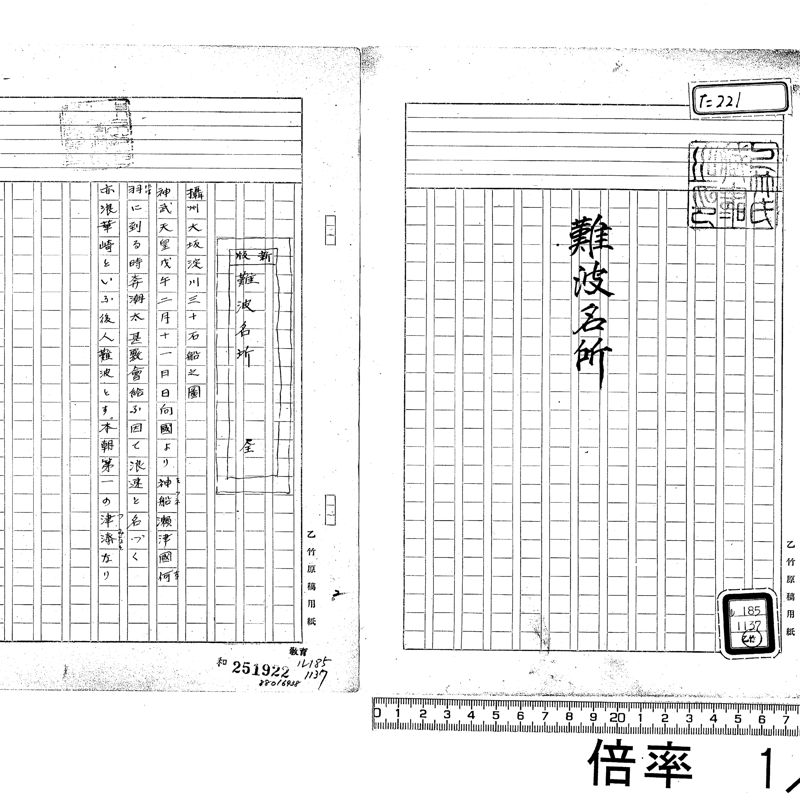 た221
難波名所
乙竹原稿用紙
185
1137
新版
難波名所 全
攝州大坂淀川三十石船之圖
神武天皇戊午二月十一日日向國より神船瀬津國何
羽に到る時奔潮太甚敷會給ふ因て浪速と名づく
亦浪華崎といふ後人難波とす。本朝第一の津済なり
乙竹原稿用紙
2
教育
和 251922
185
1137
0 1 2 3 4 5 6 7 8 9 20 1 2 3 4 5 6 7
倍率 1/